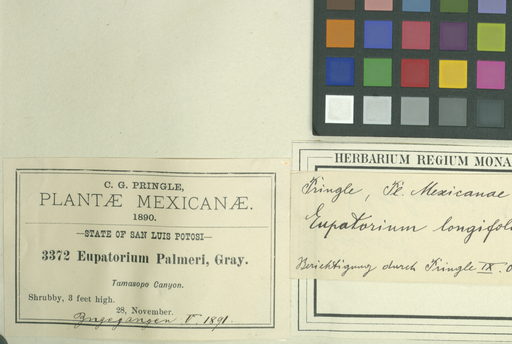 C. G. PRINGLE,
PLANTÆ MEXICANÆ.
1890.
—STATE OF SAN LUIS POTOSI—
3372 Eupatorium Palmeri, Gray.
Tamasopo Canyon.
Shrubby, 3 feet high.
28, November.
Eingegangen V. 1891.
HERBARIUM REGIUM MONA
Pringle, Pl. Mexicanae
Eupatorium longifol
Berichtigung durch Pringle IX.